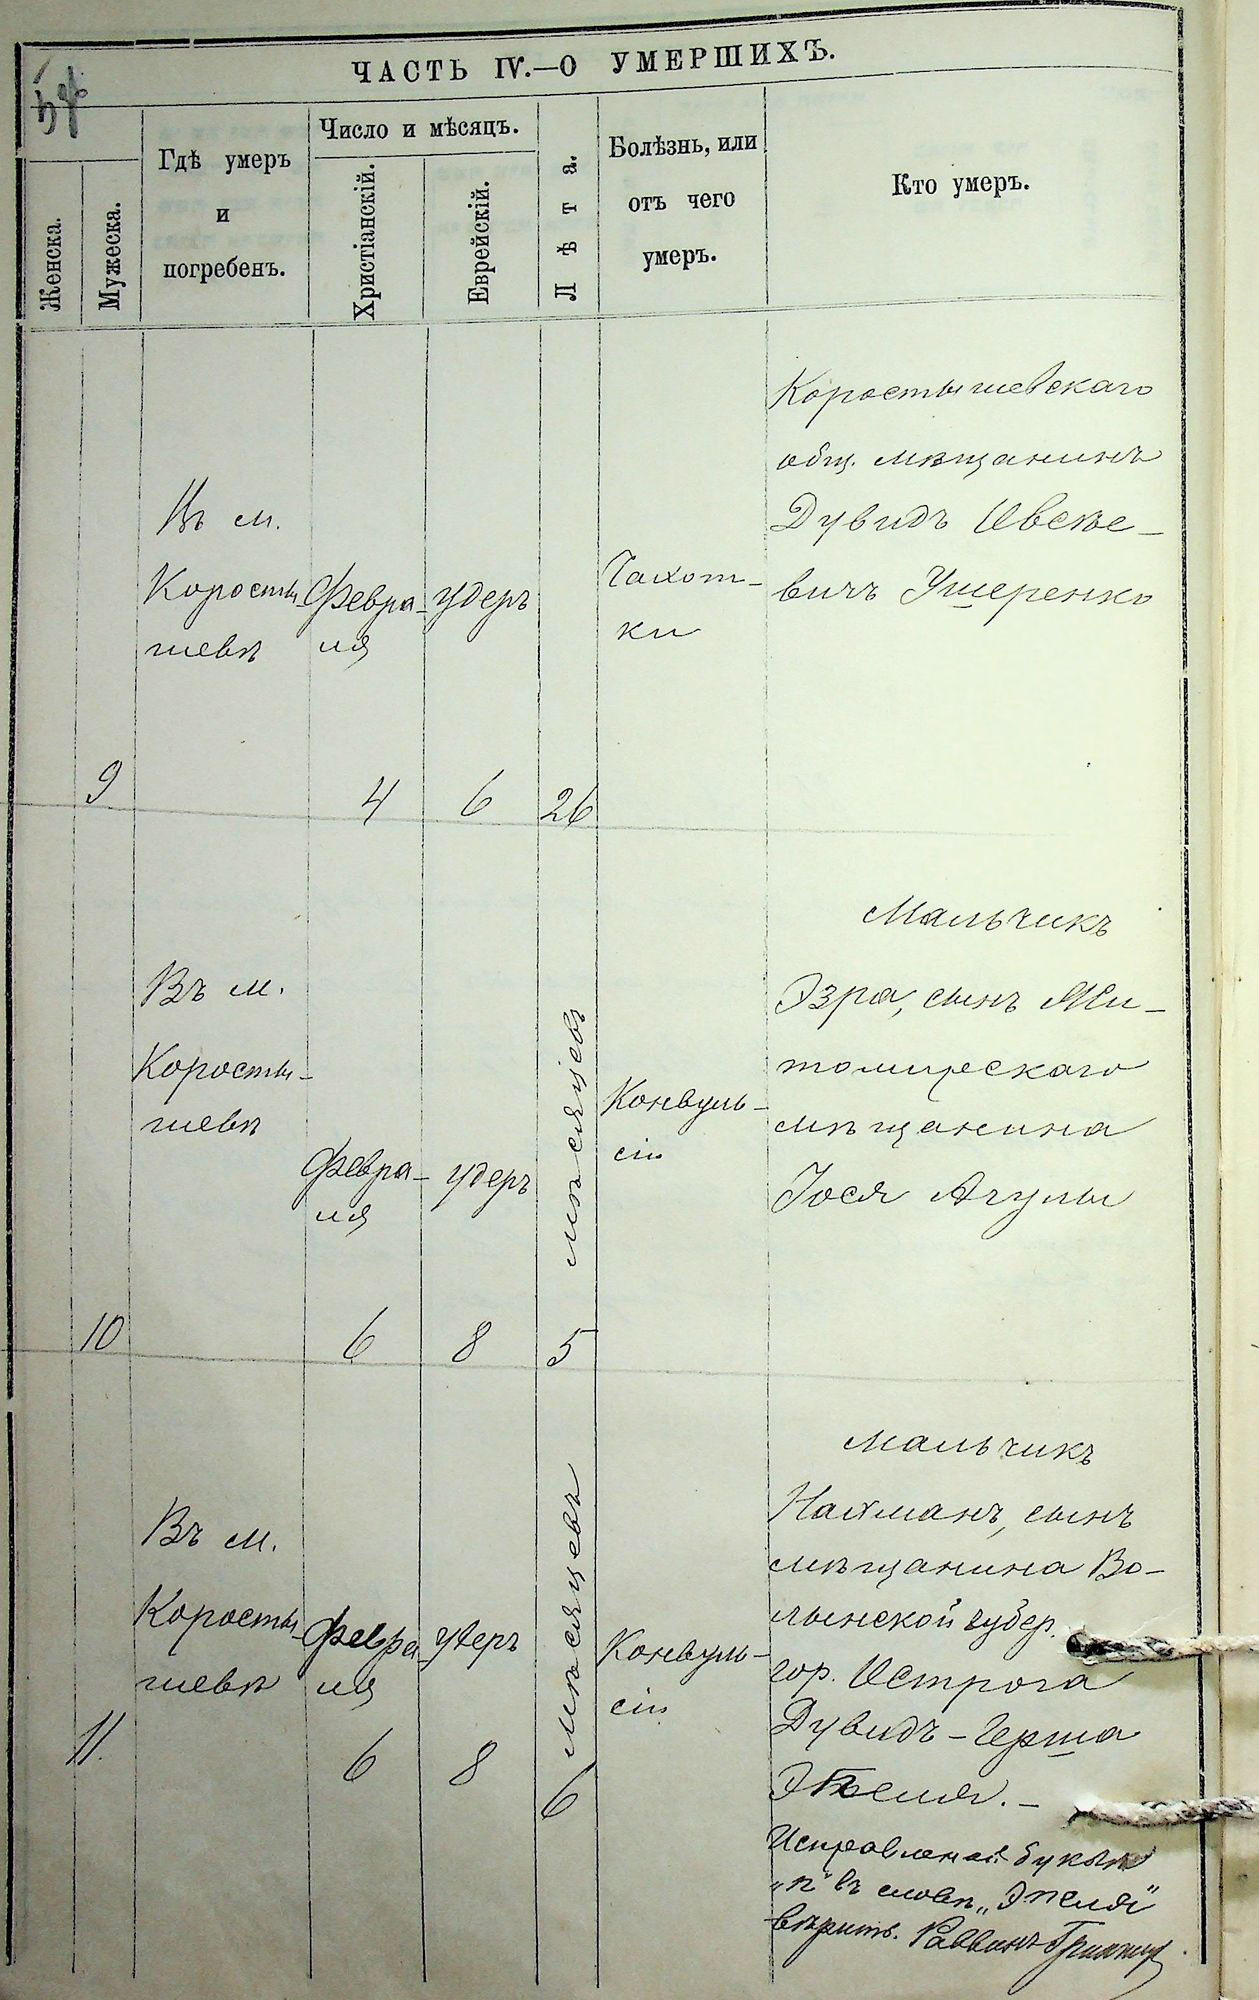 ЧАСТЬ IV.—О УМЕРШИХЪ.
Женска.
Мужеска.
Гдѣ умеръ
и
погребенъ.
Число и мѣсяцъ.
Христіанскій.
Еврейскій.
Лѣта.
Болѣзнь, или
отъ чего
умеръ.
Кто умеръ.
9
Въ м.
Коросты
шевѣ
Февра-
ля
4
удеръ
6
26
Чахот-
ки
Коростышевскаго
общ. мѣщанинъ
Дувидъ Овсѣе-
вичъ Ушеренко
10
Въ м.
Коросты-
шевѣ
Февра-
ля
6
удеръ
8
5 мѣсяцевъ
Конвуль-
сіи
Мальчикъ
Эзра, сынъ Жи-
томирскаго
мѣщанина
Іося Агулы
11.
Въ м.
Коросты-
шевѣ
Февра
ля
6
удеръ
8
6 мѣсяцевъ
Конвуль-
сіи
Мальчикъ
Нахманъ, сынъ
мѣщанина Во-
лынской губер.
гор. Острога
Дувидъ-Герша
Эпеля.-
Исправленной букви
„п" въ словѣ „Эпеля"
вѣрить. Раввинъ